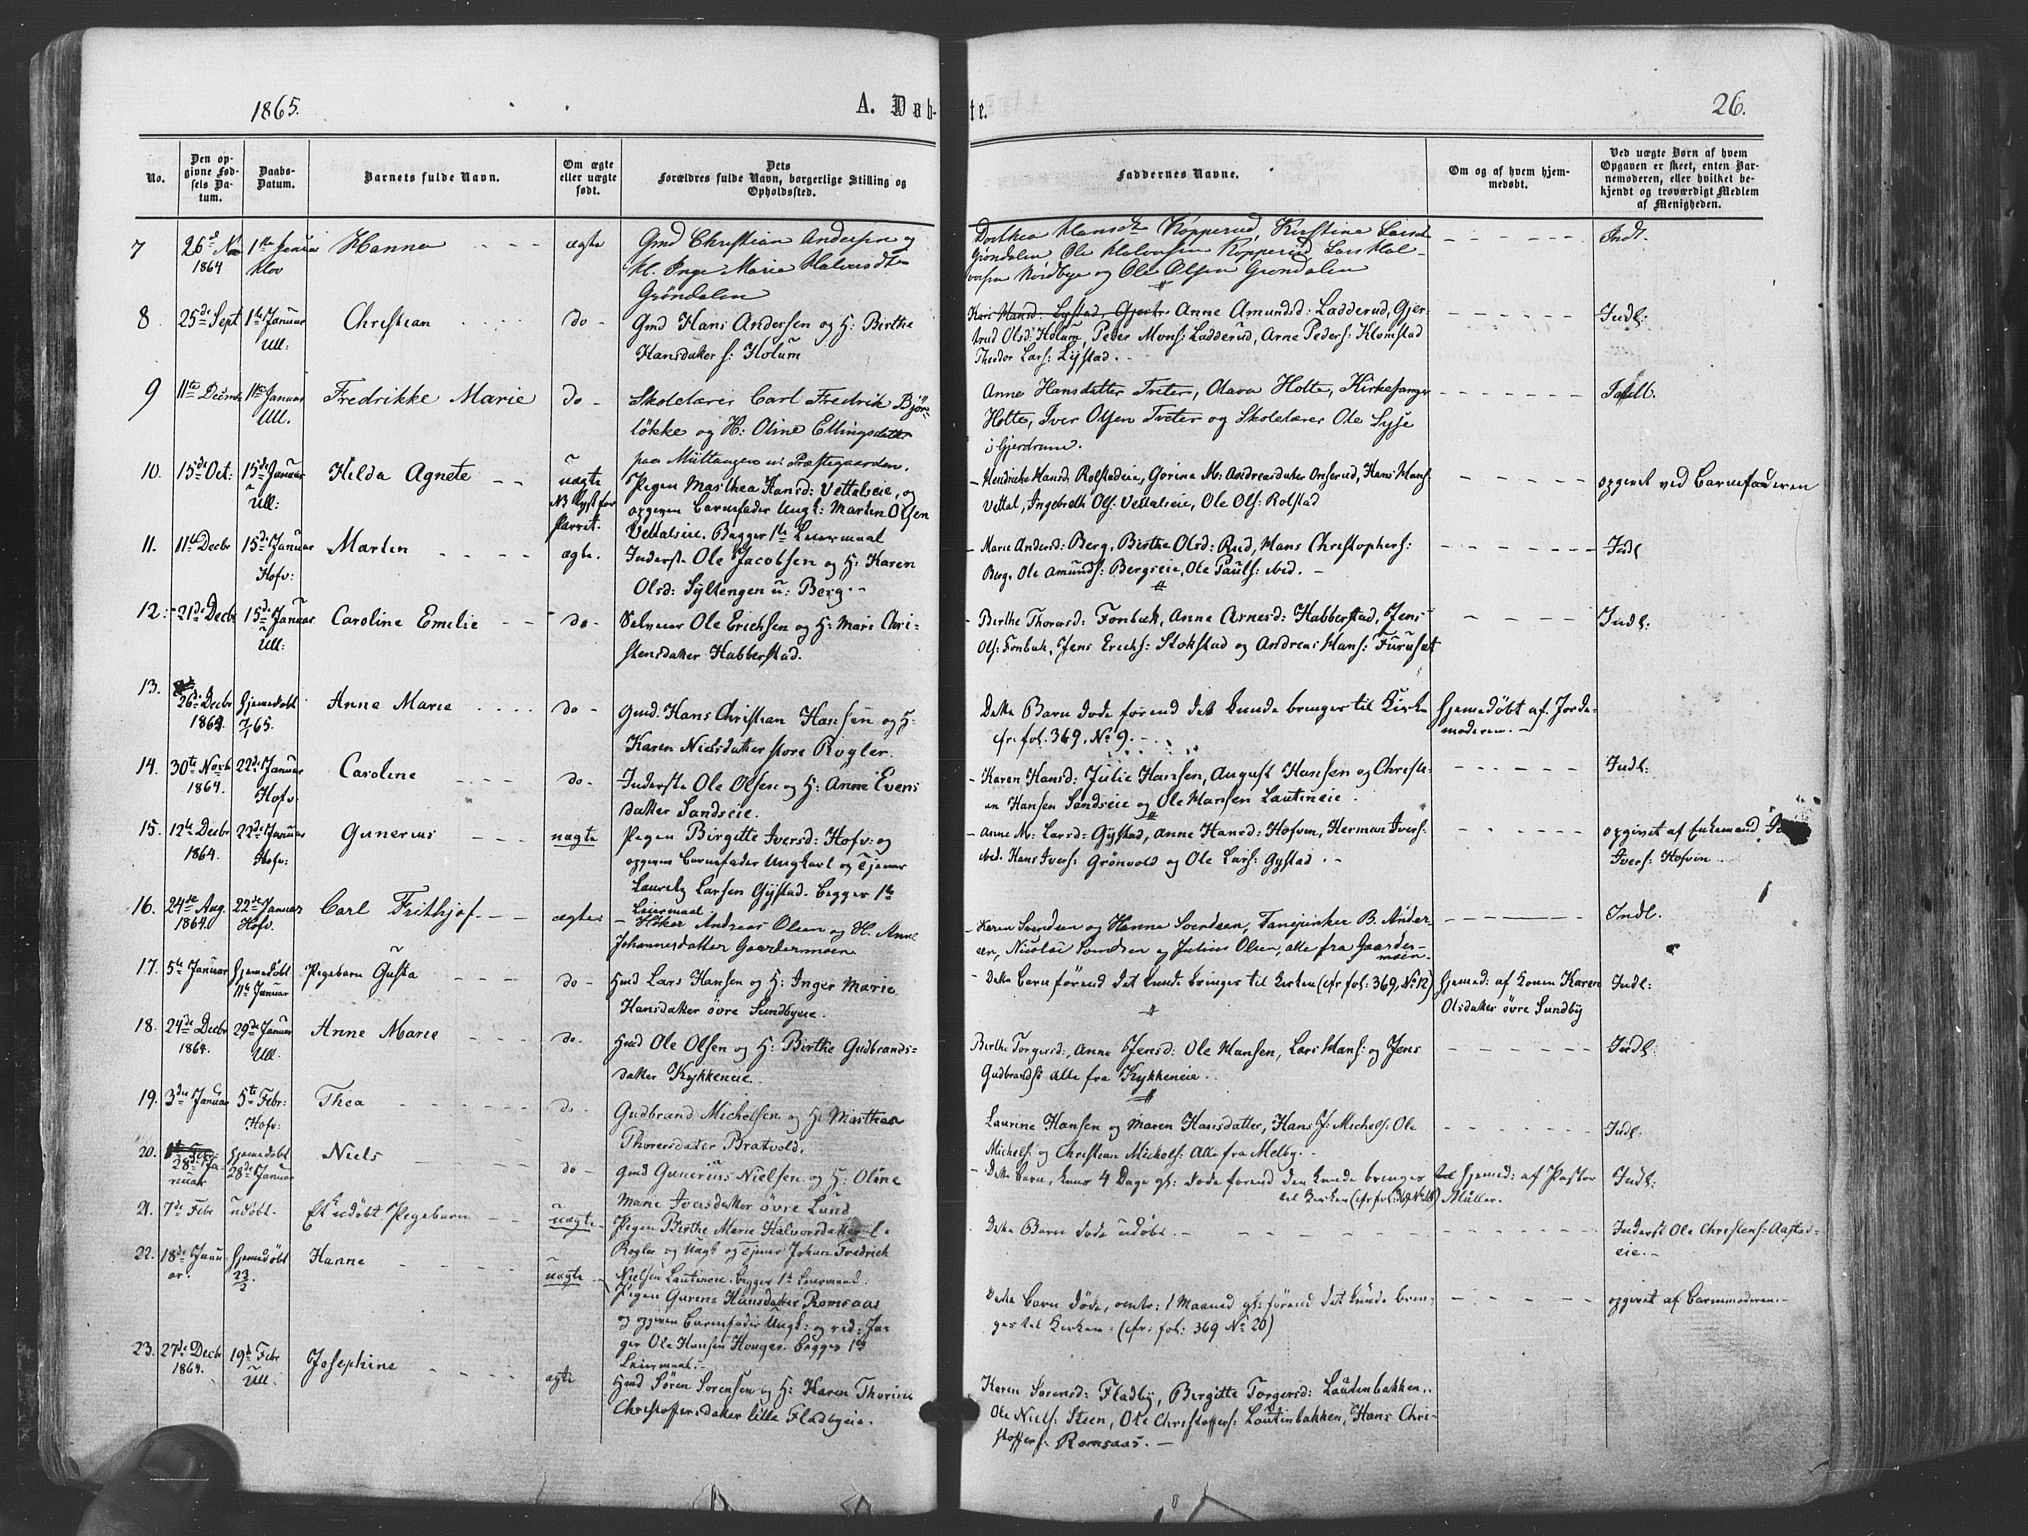 1865.
A. Daab-
te.
26.
No.
Den op-
givne Fød-
sels Da-
tum.
Daabs-
Datum.
Barnets fulde Navn.
Om ægte
eller uægte
født.
Dets
Forældres fulde Navn, borgerlige Stilling og
Opholdssted.
Faddernes Navne.
Om og af hvem hjem-
medøbt.
Ved uægte Børn af hvem
Opgaven er skeet, enten Bar-
nemoderen, eller hvilket be-
kjendt og troværdigt Medlem
af Menigheden.
7
1864
1ste Janua
Hanna
ægte
Gmd Christian Andersen og
Inge Marie Halvorsdtr
Grøndalen
Dorthea Hansdt Kopperud, Kirstine Larsdt
Grøndalen Ole Halvorsen Kopperud Lars Hal-
vorsen Nordbye og Ole Olsen Grøndalen
Indl.
8
25de Sept
1te Januar
Ull:
Christian
do
Gmd Hans Andersen og H: Birthe
Hansdatter s: Holum
Kari Hansd: Lystad, Anne Amundsd: Ladderud, Gjer-
trud Olsd: Holum, Peder Mons: Ladderud, Arne Peders: Klomstad
Theodor Lars: Lystad.
Indl:
9
11te Decmbr
Januar
Ull.
Fredrikke Marie
do
Skolelærer Carl Fredrik Bjør-
løkke og H: Oline Ellingsdatter
paa Præstegaarden.
Anne Hansdatter Tveter, Olava Holte, Kirkesanger
Holte, Iver Olsen Tveter og Skolelærer Ole Lysse
i Gjerdrum.
Indl.
10.
15de Oct:
15de Januar
Ull:
Hilda Agnete
uægte
Pigen Marthea Hansd: Vettalseie, og
opgiven Barnefader Ungk: Martin Olsen
Vettalseie. Begges 1te Leiermaal
Hendrikke Hansd Rolstadeie, Gorine M: Andreasdatter Onsrud, Hans Hans:
Vettal, Ingebreth Ols: Vettalseie, Ole Ols: Rolstad
opgivet ved Barnefaderen
11.
11te Decbr
15de Januar
Hofv:
Martin
ægte.
Inderste Ole Jacobsen og H: Karen
Olsd: Syltengen u: Berg
Marie Andersd: Berg, Birthe Olsd: Rud, Hans Christophers:
Berg, Ole Amunds: Bergseie, Ole Pauls: ibid.
Indl
12.
21de Decbr
15de Januar
Ull:
Caroline Emilie
do
Selveier Ole Erichsen og H: Mari Chri-
stensdatter Habberstad.
Birthe Thoresd: Fonbek, Anne Arnesd: Habberstad, Jens
Ols: Fonbek, Jens Erichs: Stokstad og Andreas Hans: Furuset
Indl:
13.
26de Decbr
1864
Hjemedøbt
7/1 65.
Anne Marie
do
Gmd. Hans Christian Hansen og H:
Karen Nielsdatter store Rogler.
Dette Barn døde førend det kunde bringes til Kirke
cfr. fol. 369, No 9.
Hjemedøbt af Jorde-
moderen.
14.
30te Novb
1864.
22de Januar
Hofv:
Caroline
do
Inderste Ole Olsen og H: Anne Evens
datter Sandseie.
Karen Hansd: Julie Hansen, August Hansen og Christi-
an Hansen Sandseie og Ole Hansen Lautineie.
Indl:
15.
12te Decbr
1864.
22de Januar
Hofv:
Gunerius
uægte
Pigen Birgitte Iversd: Hofv: og
opgiven Barnefader Ungkarl og Tjener
Lauritz Larsen Gystad. begges 1te
Leiermaal
Anne M: Larsd: Gystad, Anne Hansd: Hofvin, Herman Ivers:
ibid. Hans Ivers: Grønvold og Ole Lars: Gystad.
opgivet af Enkemand
Ivers: Hofvin
16.
24de Aug.
1864.
22de Januar
Hofv.
Carl Frithjof
ægte
Høker Andreas Olsen og H. Anne
Johannesdatter Gardermoen
Karen Svendsen og Hanna Svendsen, B. Ander-
sen, Nicolai Svendsen og Julius Olsen, alle fra Gaarder-
moen
Indl.
17.
5te Januar
Hjemedøbt
11te Januar
Pigebarn Gusta
do
Hmd Lars Hansen og H: Inger Marie
Hansdatter øvre Sundbyeie.
Dette Barn førend det kunde bringes til Kirken (cfr fol: 369, No 12)
Hjemed: af Konen Karen
Olsdatter øvre Sundby
Indl:
18.
24de Decbr
1864.
29de Januar
Ull.
Anne Marie
do.
Hmd Ole Olsen og H: Birthe Gudbrands-
datter Kykkeneie.
Berthe Torgersd:, Anne Jensd: Ole Hansen, Lars Hans: og Jens
Gudbrandss alle fra Kykkeneie.
Indl:
19.
3die Januar
5te Febr:
Hofv:
Thea
do
Gudbrand Michelsen og H: Marthea
Thorersdatter Bratvold.
Laurine Hansen og Maren Hansdatter, Hans J: Michels: Ole
Michels: og Christian Michels: Alle fra Melby.
Indl:
20.
28de Ja-
nuar
Hjemedøbt
28de Januar
Niels
do
Gmd Gunerius Nielsen og H: Oline
Marie Iversdatter øvre Lund
Dette Barn, kuns 4 Dage gl: døde førend det kunde bringes
til Kirken (cfr fol: 369 No 18)
Hjemed: af Pastor
Müller.
Indl:
21.
7de Febr
udøbt.
Et udøbt Pigebarn
uægte
Pigen Birthe Marie Halvorsdatter l:
Rogler og Ungk og Tjener Johan Fredrich
Nielsen Lautineie. begges 1te Leiermaal.
Dette Barn døde udøbt.
Inderst Ole Christens: Aastad-
eie.
22.
18de Janu-
ar.
Hjemedøbt
23/2
Hanne
uægte
Pigen Gurene Hansdatter Romsaas
og opgiven Barnefader Ungk: og rid: Jæ-
ger Ole Hansen Hauger. begges 1te
Leiermaal.
Dette Barn døde, omtr: 1 Maaned gl: førend det kunde brin-
ges til Kirken: (cfr: fol: 369 No 20)
opgivet af Barnemoderen.
23.
27de Decbr
1864.
19de Febr
Ull.
Josephine
ægte
Hmd Søren Sørensen og H: Karen Thorine
Christoffersdatter lille Fladbyeie.
Karen Sørensd: Fladby, Birgitte Torgersd: Lautinbakken,
Ole Niels: Steen, Ole Christoffers: Lautinbakken, Hans Chri-
stoffers: Romsaas.